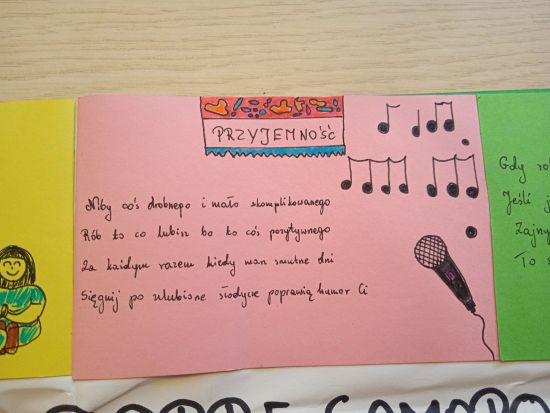 PRZYJEMNOŚĆ
Niby coś drobnego i mało skomplikowanego
Rób to co lubisz bo to coś pozytywnego
Za każdym razem kiedy masz smutne dni
Sięgnij po ulubione słodycze poprawią humor Ci
Gdy
Jeśli
To